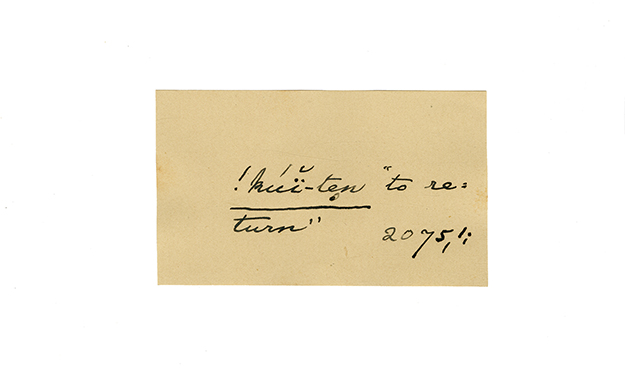 !kúï̆-tẹn "to re=
turn"
2075,1;